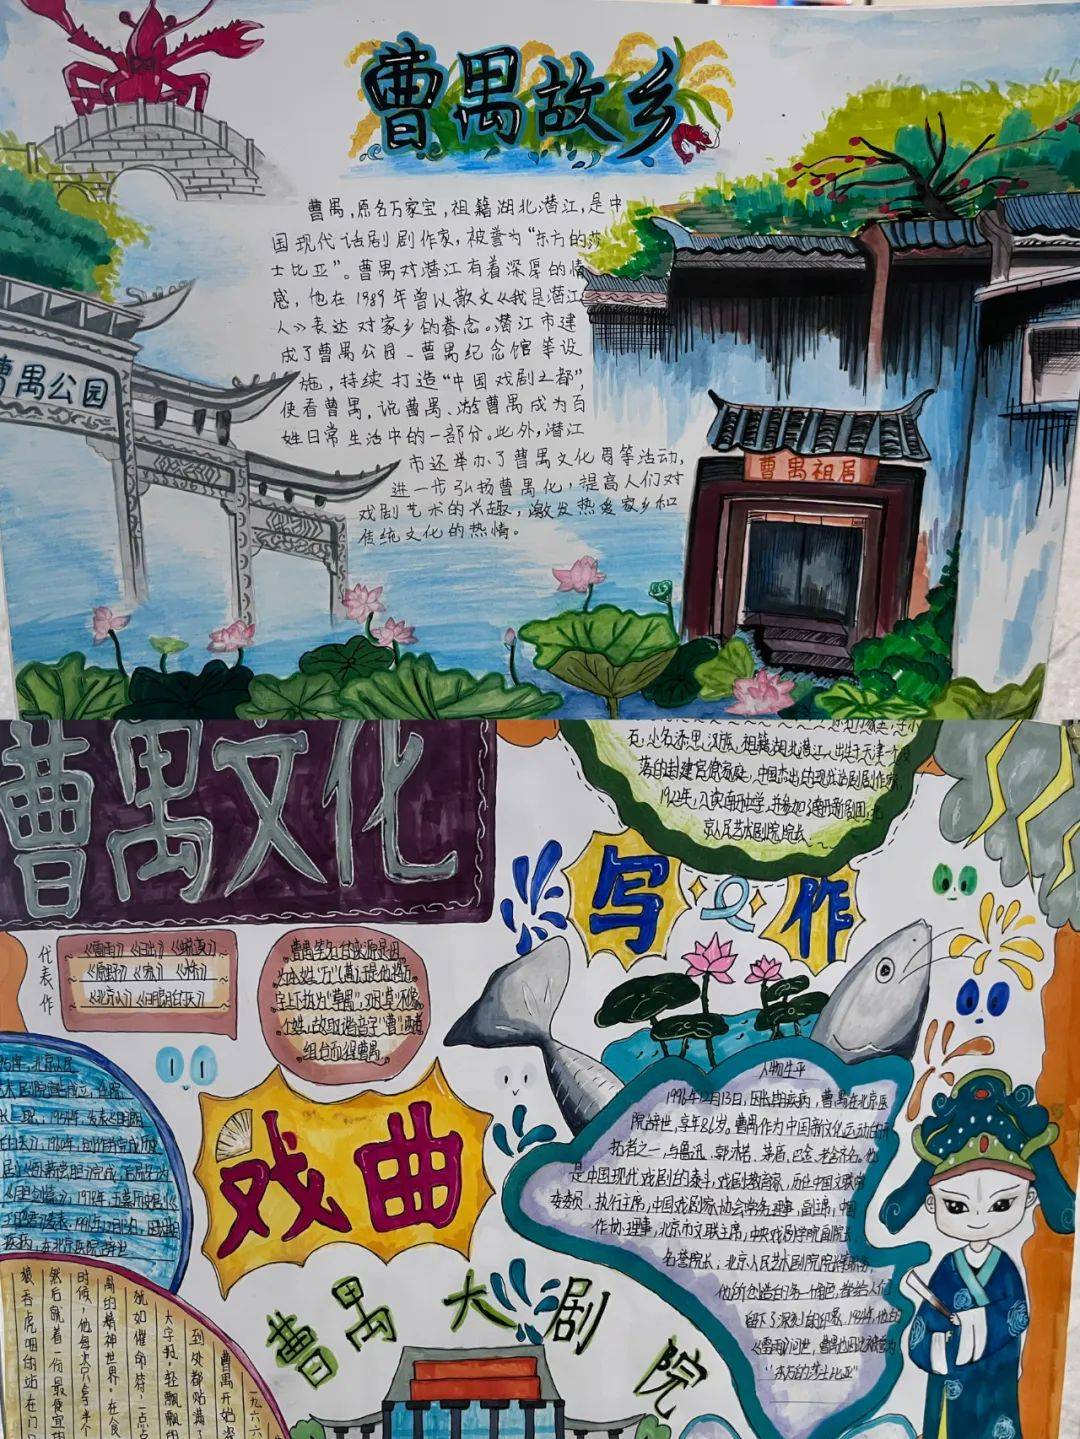 曹禺故乡
曹禺,原名万家宝,祖籍湖北潜江,是中
国现代话剧剧作家,被誉为“东方的莎
士比亚”。曹禺对潜江有着深厚的情
感,他在1989年曾以散文《我是潜江
人》表达对家乡的眷念。潜江市建
成了曹禺公园、曹禺纪念馆等设
施,持续打造“中国戏剧之都”,
使看曹禺,说曹禺、游曹禺成为百
姓日常生活中的一部分。此外,潜江
市还举办了曹禺文化周等活动,
进一步弘扬曹禺化,提高人们对
戏剧艺术的兴趣,激发热爱家乡和
传统文化的热情。
曹禺公园
曹禺祖居
曹禺文化
石,小名添甲,汉族,祖籍湖北潜江,出生天津一个没
落的封建官僚家庭,中国杰出的现代话剧剧作家,
京人民艺术剧院院长
写作
代表作
《雷雨》《日出》《蜕变》
《原野》《家》《桥》
《北京人》《明朗的天》
组合而得曹禺
戏曲
人物生平
1996年12月13日,因长期疾病,曹禺在北京医
院辞世,享年86岁。曹禺作为中国新文化运动的开
拓者之一,与鲁迅、郭沫若、茅盾、巴金、老舍齐名。他
是中国现代戏剧的泰斗,戏剧教育家,历任中国文联常
委委员,执行主席,中国戏剧家协会常务理事,副主席,中国
作协理事,北京市文联主席,中央戏剧学院副院长、
名誉院长,北京人民艺术剧院院长等职务,
他所创造的每一个角色,都给人们
留下了深刻的印象,1934年,他的
《雷雨》问世,曹禺也因此被誉为
“东方的莎士比亚”
曹禺大剧院
到处都贴满了
大字报,轻飘飘的
犹如催命符,一点点
禺的精神世界。在食
时候,他每次只拿半个
然后就着一份最便宜的
狼吞虎咽的站在门